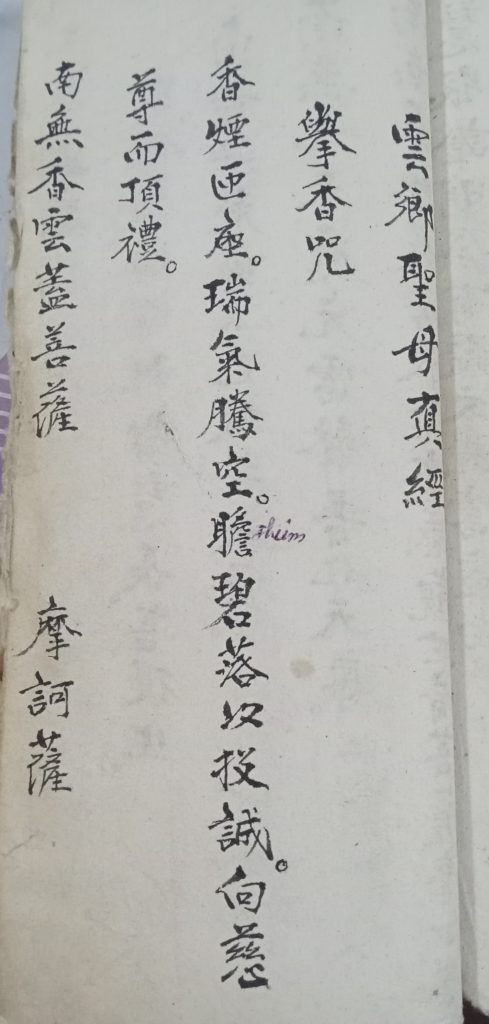 雲鄉聖母真經
舉香咒
香煙匝座。瑞氣騰空。瞻碧落以投誠。向慈
尊而頂禮。
南無香雲蓋菩薩 摩訶薩